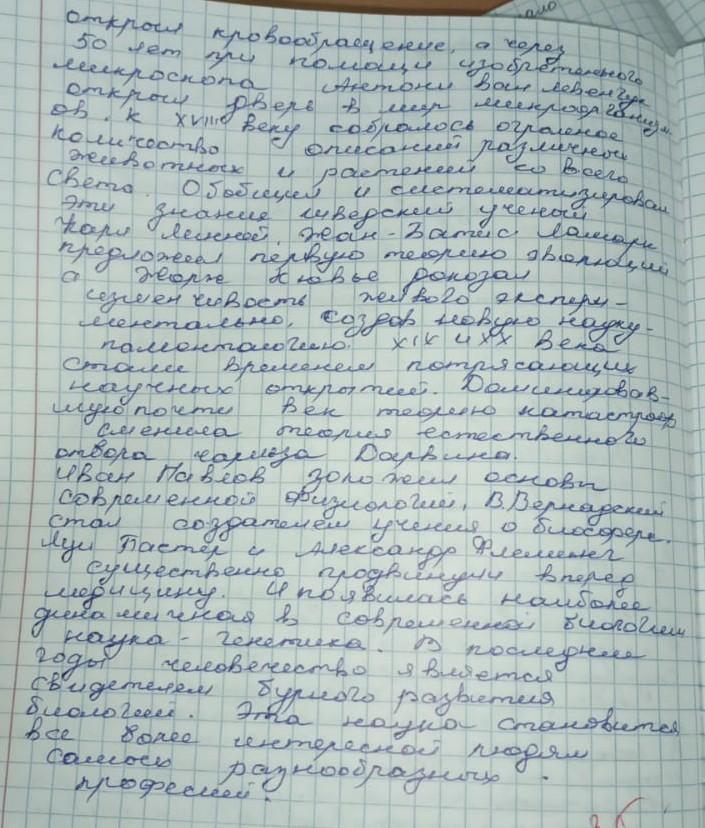 открыл кровообращение, а через
50 лет при помощи изобретенного
микроскопа Антони ван Левенгук
открыл дверь в мир микроорганизм
ов. К XVIII веку собралось огромное
количество описаний различных
животных и растений со всего
света. Обобщил и систематизировал
эти знание шведский ученый
Карл Линней, Жан-Батис Ламарк
предложил первую теорию эволюций
а Жорж Кювье доказал
изменчивость живого экспери-
ментально, создав новую науку-
палеонтологию. XIX и XX века
стали временем потрясающих
научных открытий. Доминировав-
шую почти век теорию катастроф
сменила теория естественного
отбора Чарльза Дарвина.
Иван Павлов заложил основы
современной физиологий, В.Вернадский
стал создателем учения о биосфере.
Луи Пастер и Александр Флеменг
существенно продвинули вперед
медицину. И появилась наиболее
динамичная в современной биологии
наука - генетика. В последние
годы человечество является
свидетелем бурного развития
биологий. Эта наука становится
все более интересной людям
самых разнообразных
профессий.